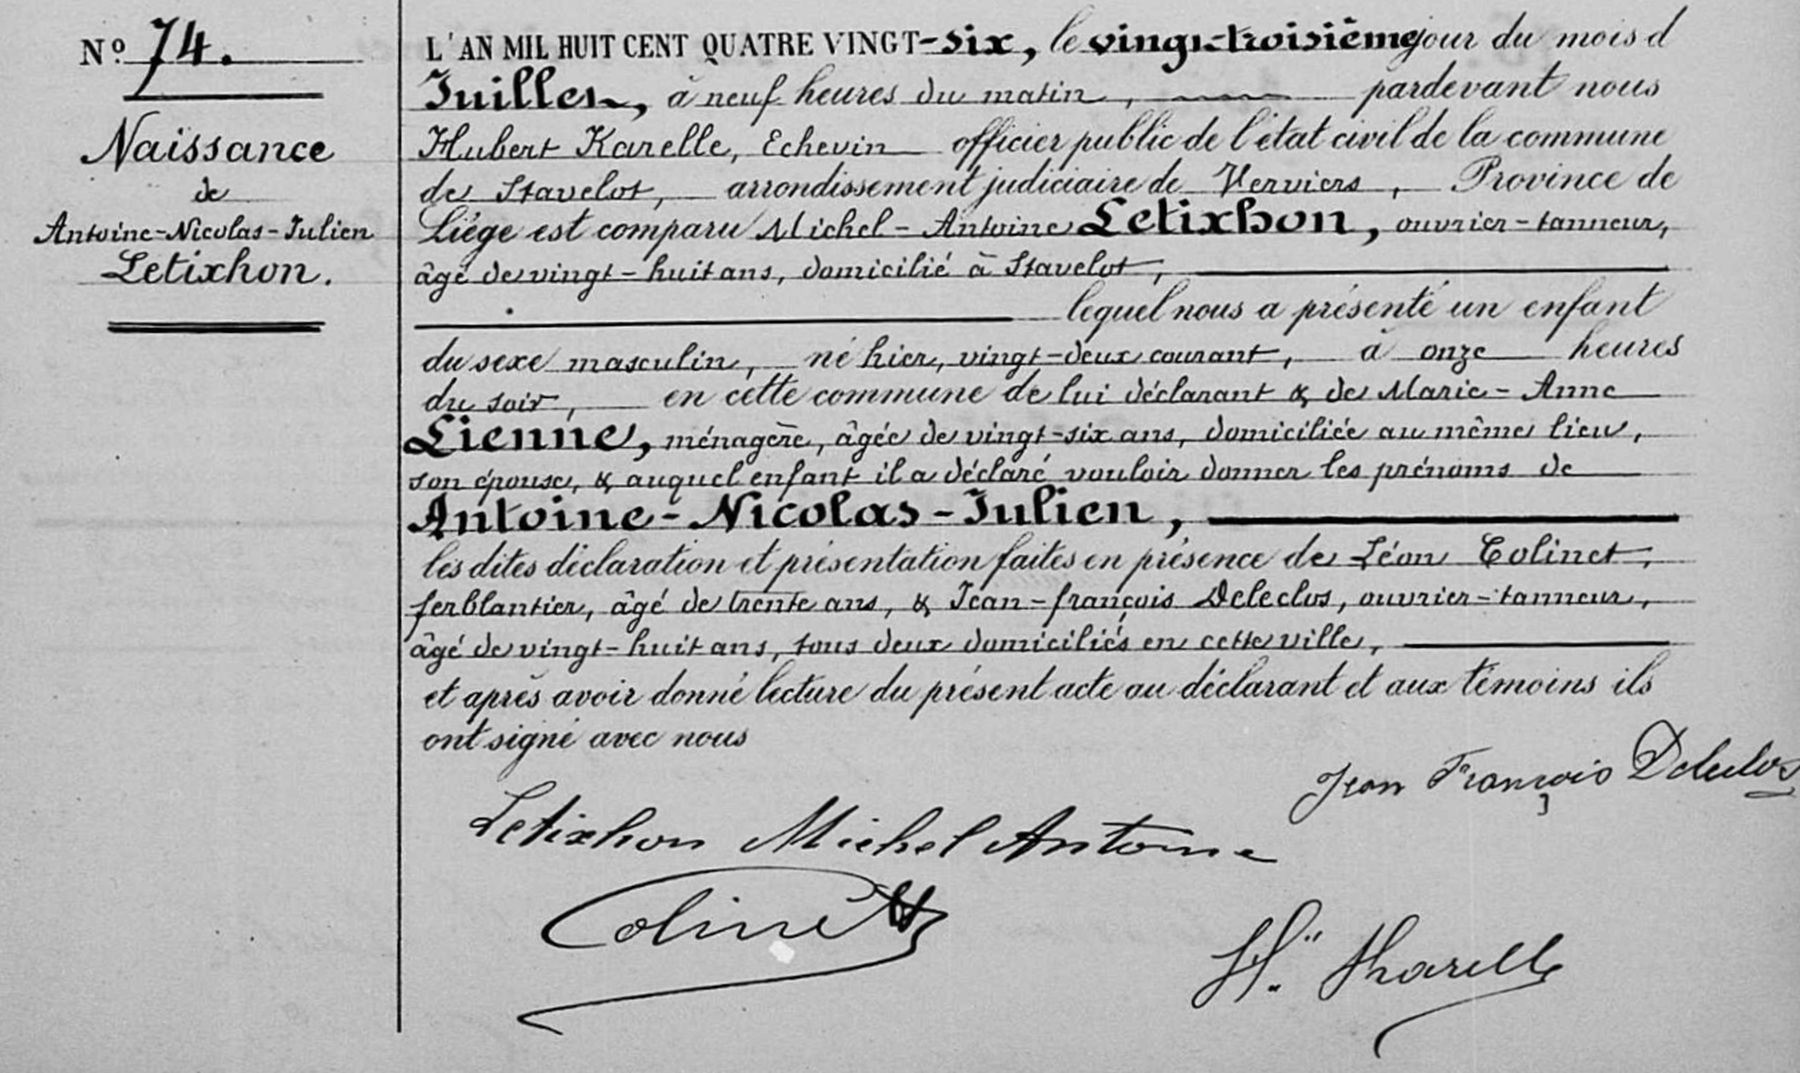 Nº 74.
Naissance
de
Antoine-Nicolas-Julien
Letixhon.
L'AN MIL HUIT CENT QUATRE VINGT-six, le vingt-troisième jour du mois d
Juillet, à neuf heures du matin, pardevant nous
Hubert Karelle, Echevin officier public de l'état civil de la commune
de Stavelot, arrondissement judiciaire de Verviers, Province de
Liége est comparu Michel-Antoine Letixhon, ouvrier-tanneur,
âgé de vingt-huit ans, domicilié à Stavelot,
lequel nous a présenté un enfant
du sexe masculin, né hier, vingt-deux courant, à onze heures
du soir, en cette commune de lui déclarant & de Marie-Anne
Lienne, ménagère, âgée de vingt-six ans, domiciliée au même lieu,
son épouse, & auquel enfant il a déclaré vouloir donner les prénoms de
Antoine-Nicolas-Julien,
les dites déclaration et présentation faites en présence de Léon Colinet,
ferblantier, âgé de trente ans, & Jean-françois Deleclos, ouvrier-tanneur,
âgé de vingt-huit ans, tous deux domiciliés en cette ville,
et après avoir donné lecture du présent acte au déclarant et aux témoins ils
ont signé avec nous
Jean François Deleclos
Letixhon Michel Antoine
Colinet
H. Karelle